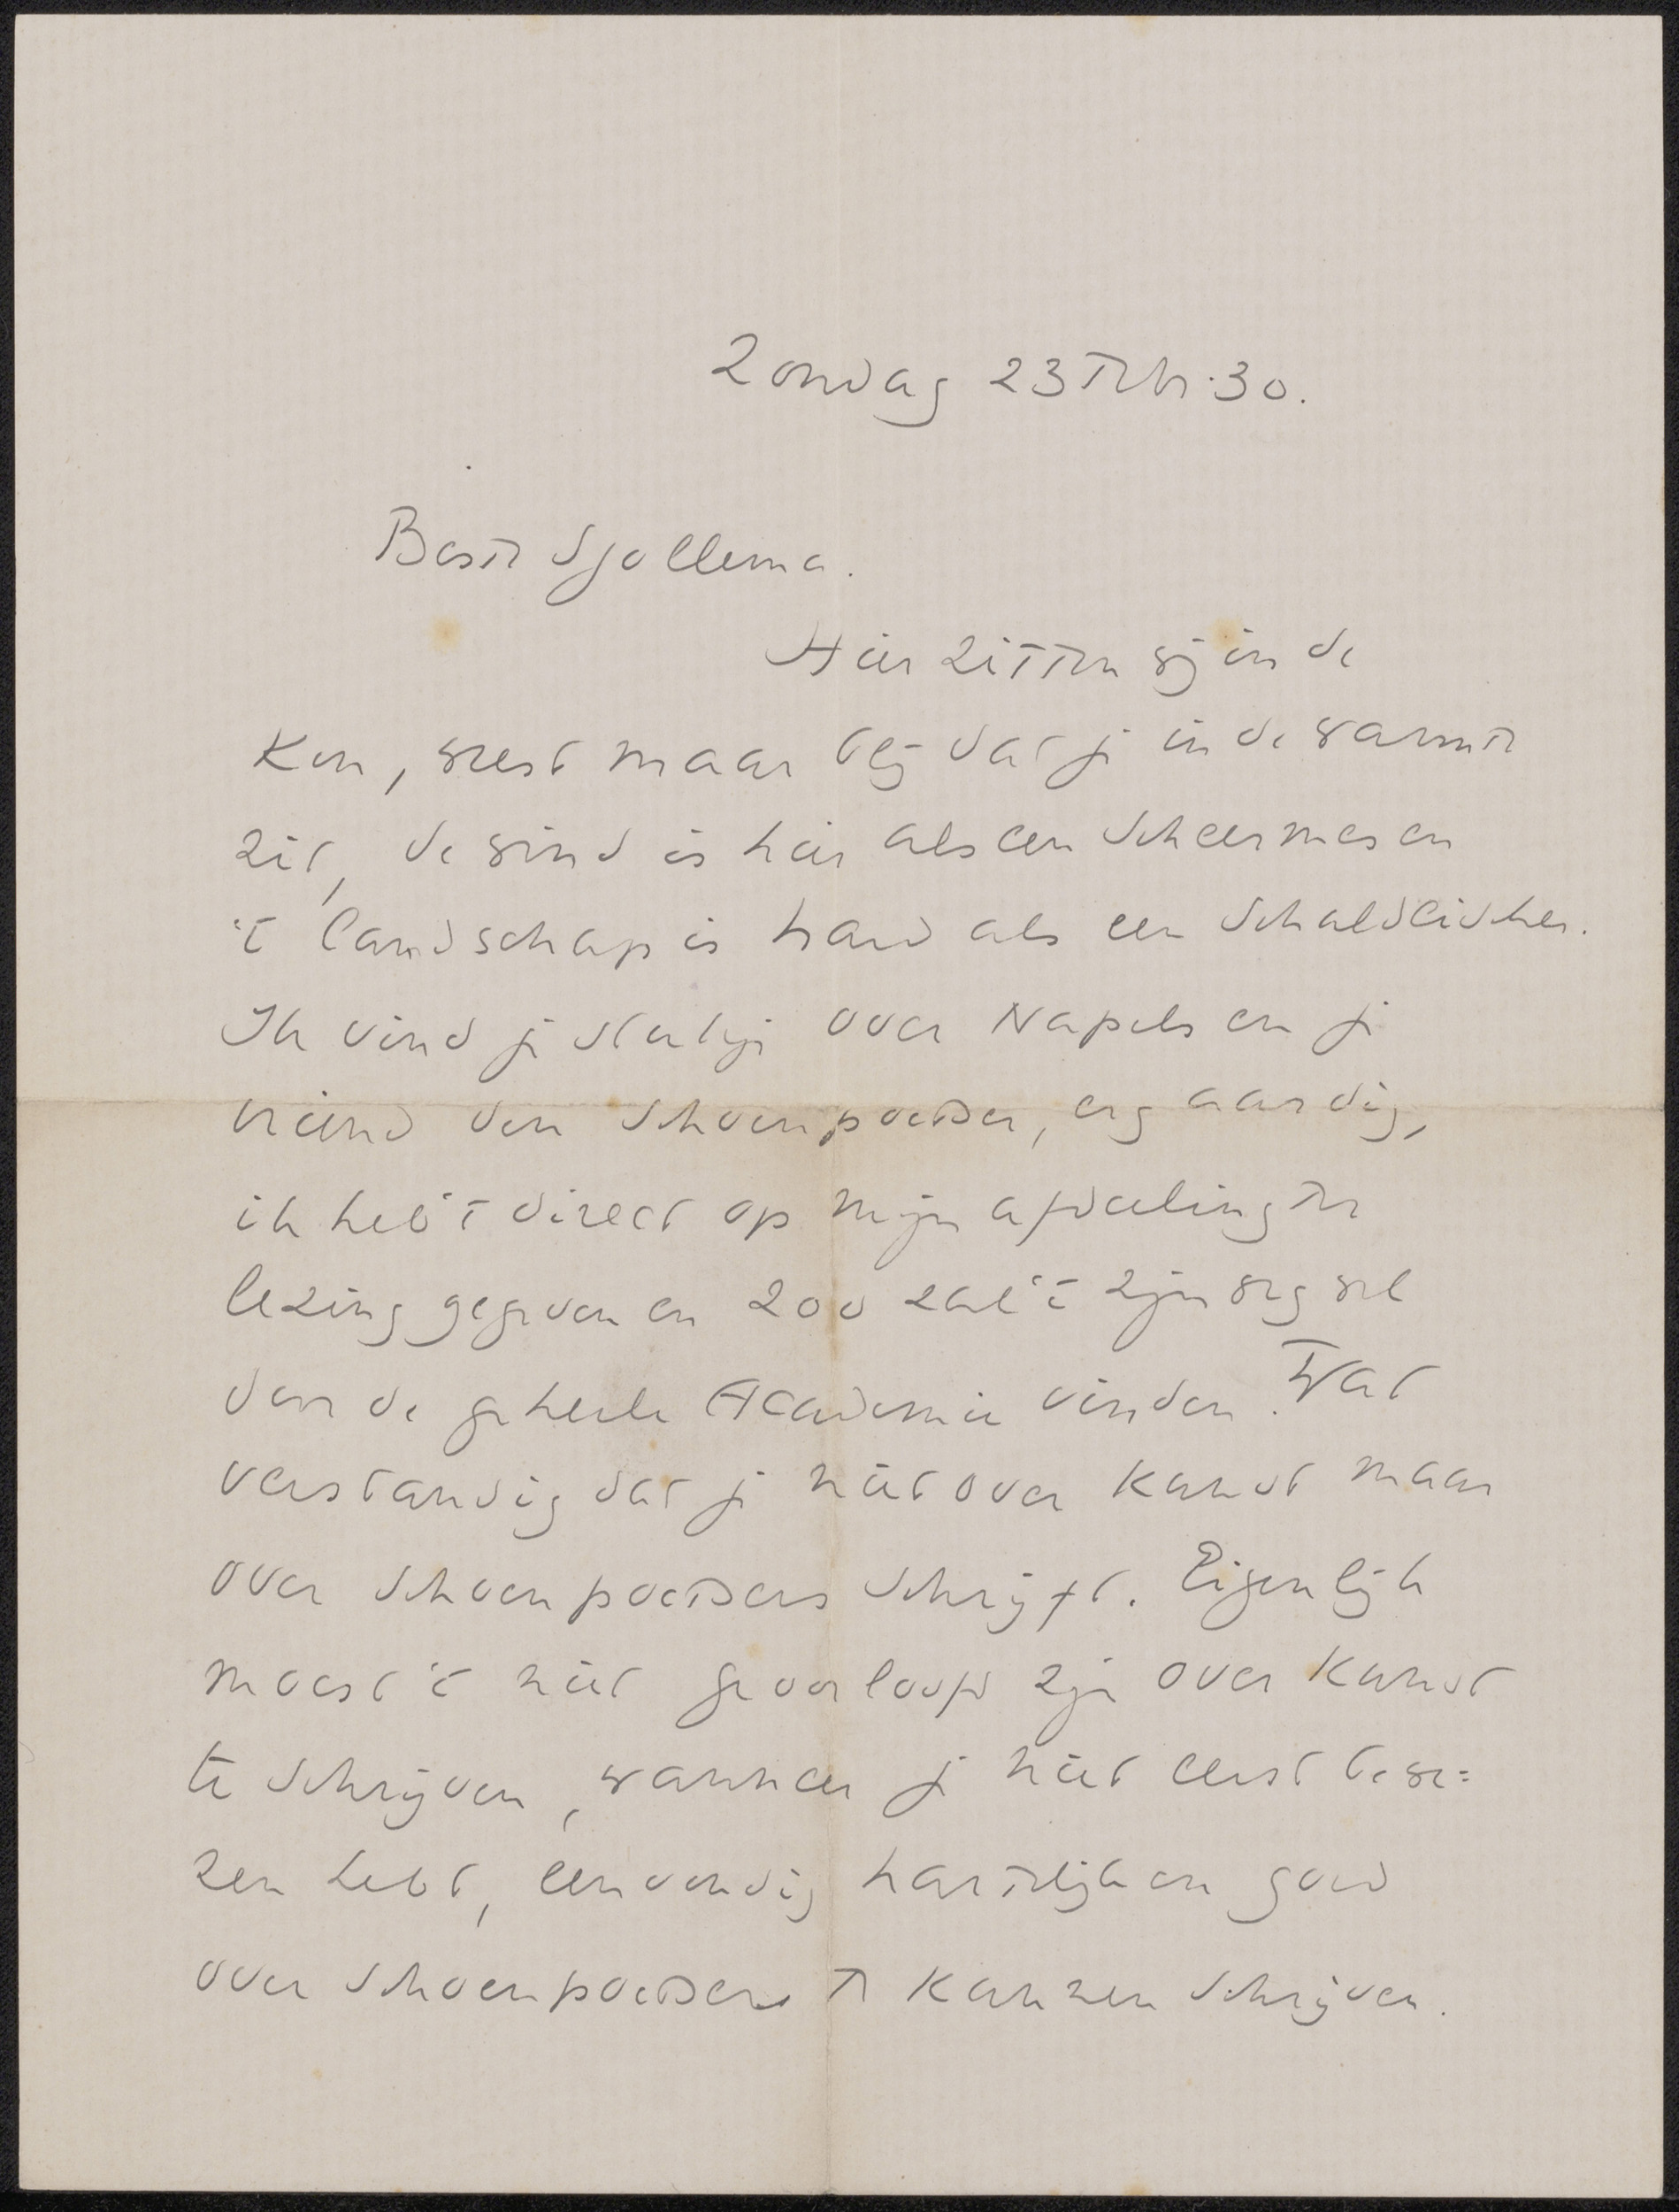 Zondag 23 Febr. 30.
Beste Sjollema.
Hier zitten wij in de
kou, weest maar blij dat je in de warmte
zit, de wind is hier als een scheermes en
't landschap is hard als een
Ik vind je stukje over Napels en je
vriend den schoenpoetser, erg aardig,
ik heb 't direct op mijn afdeeling ter
lezing gegeven en zoo zal 't zijn weg wel
door de geheele Academie vinden. Wat
verstandig dat je niet over kunst maar
over schoenpoetsers schrijft. Eigenlijk
moest 't niet geoorloofd zijn over kunst
te schrijven, wanneer je niet eerst bewe=
zen hebt, eenvoudig hartelijk en goed
over schoenpoetsers te kunnen schrijven.